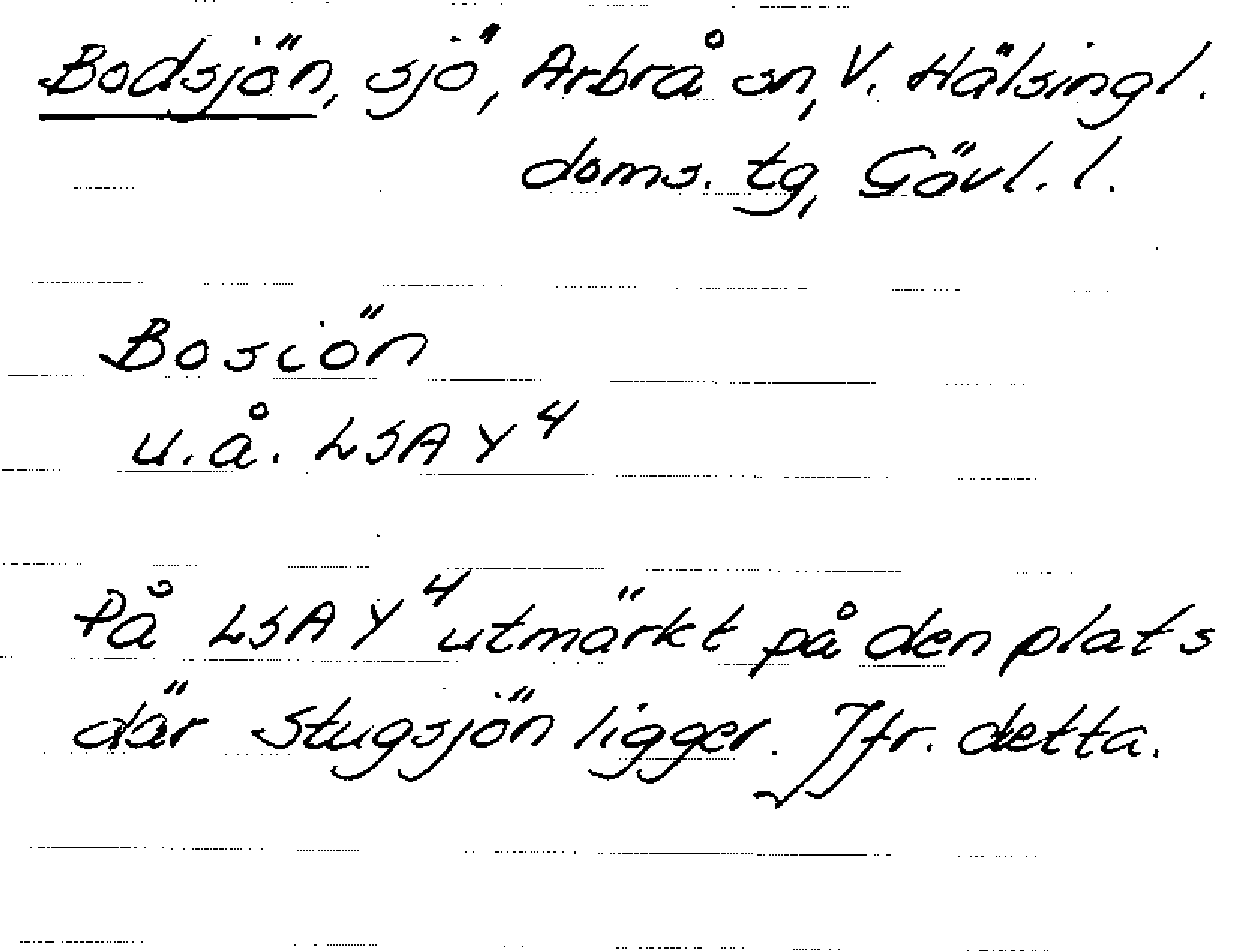 Bodsjön, sjö, Arbrå sn, V. Hälsingl.
doms. tg, Gävl. l.
Bosiön
u.å. LSA Y⁴
På LSA Y⁴ utmärkt på den plats
där Stugsjön ligger. Jfr. detta.